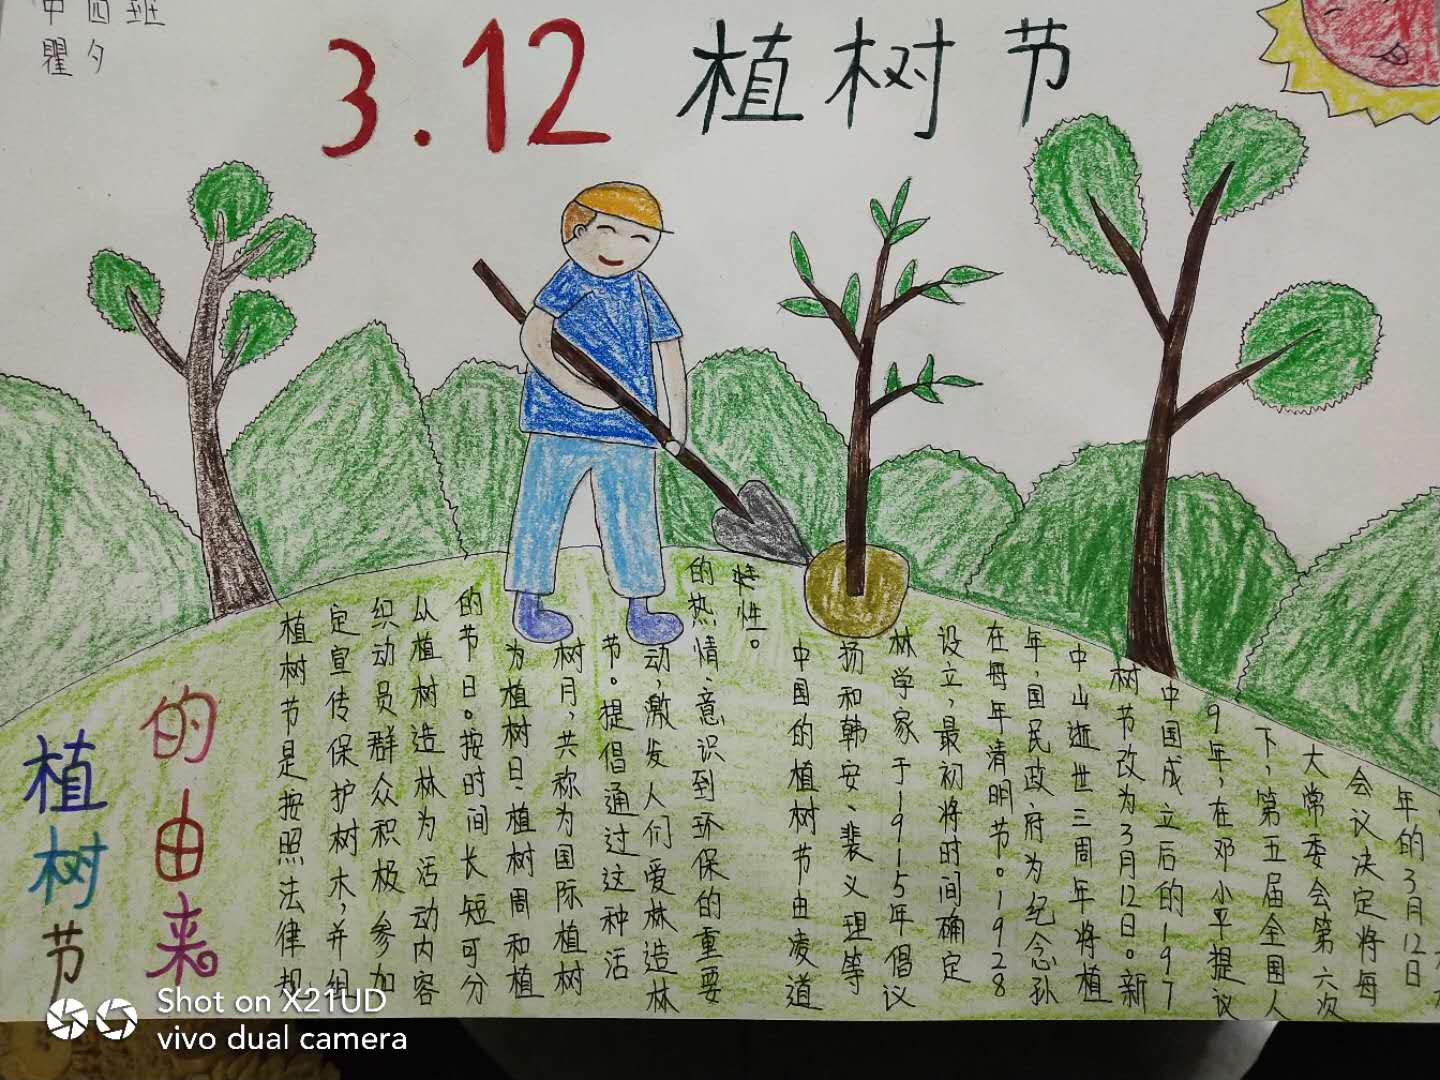 中四班
瞿夕
3.12 植树节
植树节
的由来
植树节是按照法律规
定宣传保护树木,并组
织动员群众积极参加
从植树造林为活动内容
的节日。按时间长短可分
为植树日、植树周和植
树月,共称为国际植树
节。提倡通过这种活
动,激发人们爱林造林
的热情、意识到环保的重要
性。
中国的植树节由凌道
扬和韩安、裴义理等
林学家于1915年倡议
设立,最初将时间确定
在每年清明节。1928
年,国民政府为纪念孙
中山逝世三周年将植
树节改为3月12日。新
中国成立后的197
9年,在邓小平提议
下,第五届全国人
大常委会第六次
会议决定将每
年的3月12日
Shot on X21UD
vivo dual camera